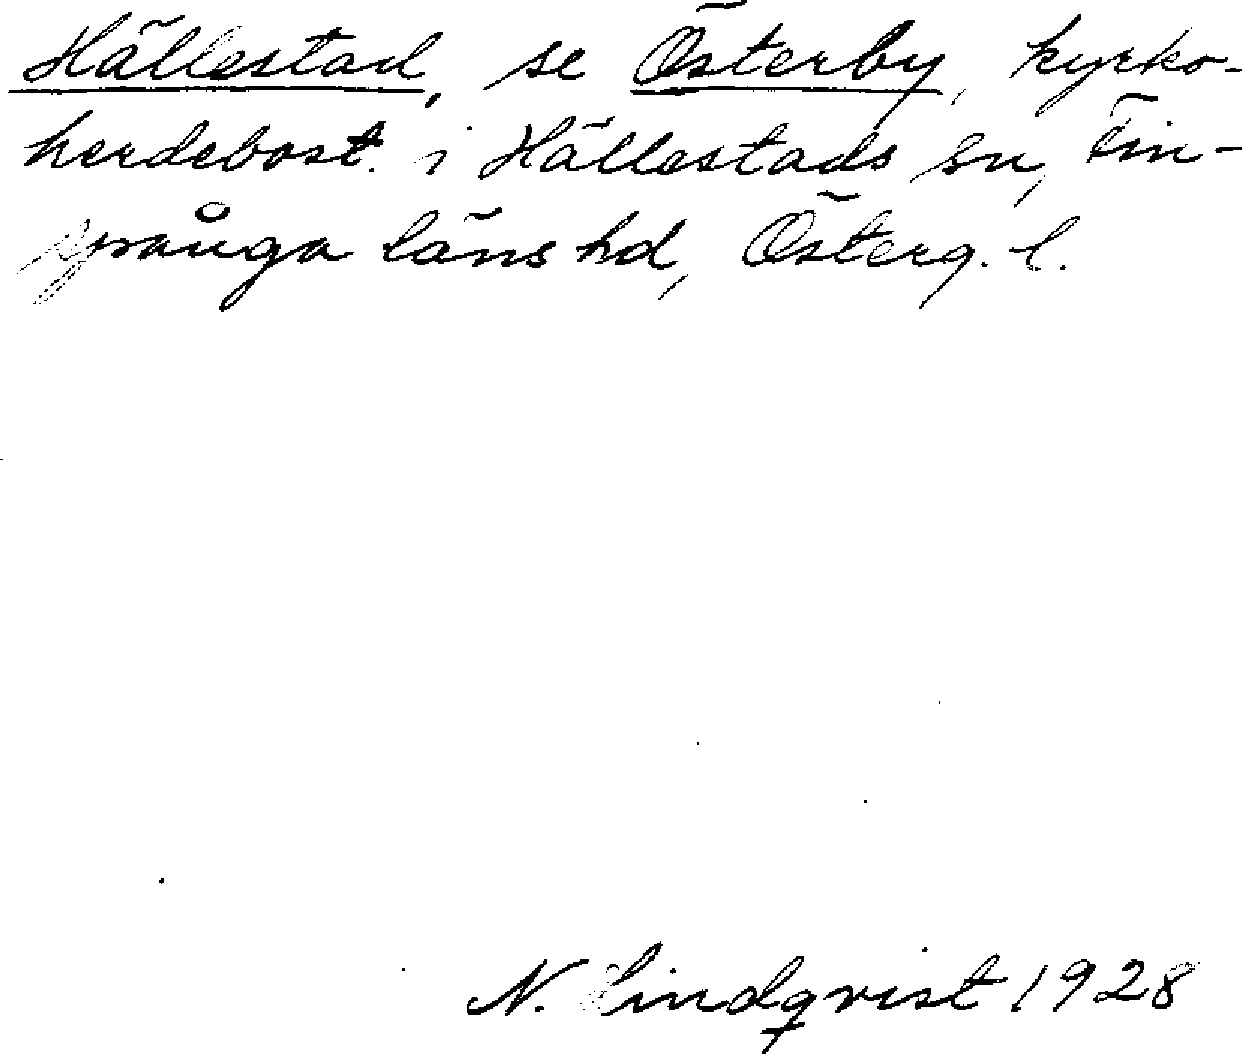 Hällestad, se Österby, kyrko-
herdebost. i Hällestads sn, Fin-
spånga läns hd, Österg. l.
N. Lindqvist 1928